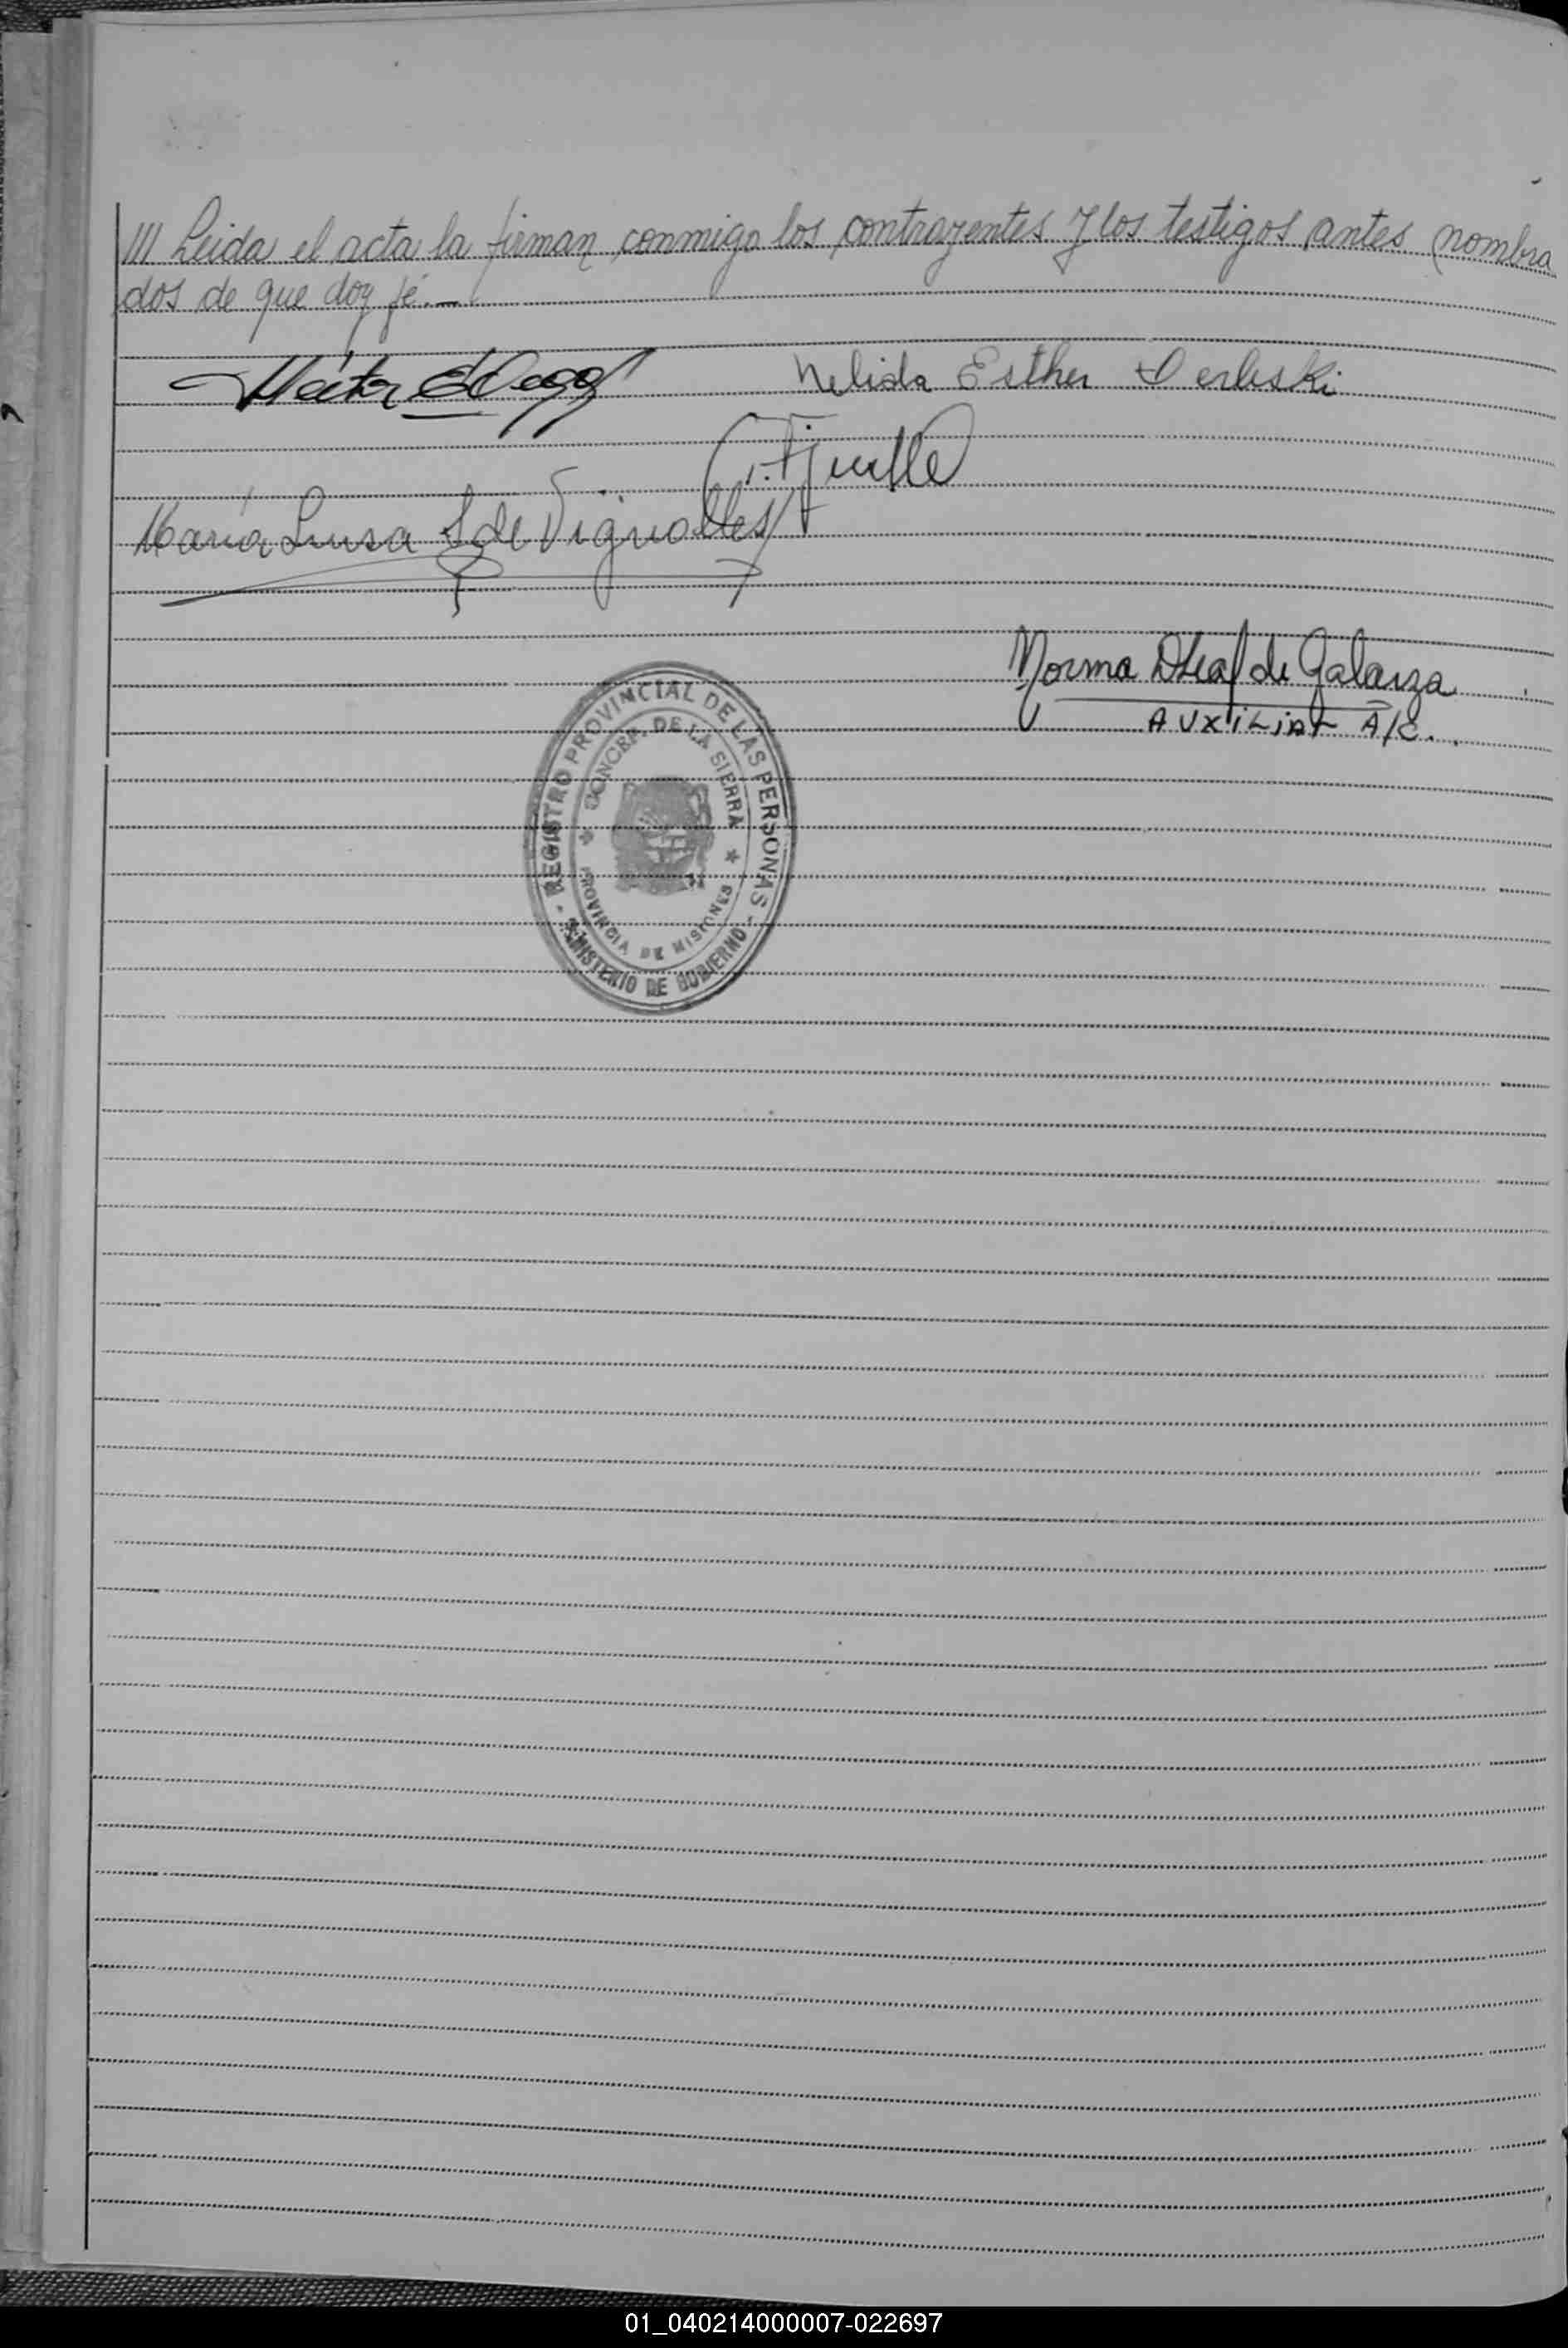 /// Leida el acta la firman conmigo los contrayentes y los testigos antes nombra
dos de que doy fé.—
Héctor E
Nelida Esther Derleski
María Luisa S de Vignolles
Norma de Galarza
AUXiLiAr A/C.
- REGISTRO PROVINCIAL DE LAS PERSONAS -
CONCEP. DE LA SIERRA
PROVINCIA DE MISIONES
MINISTERIO DE GOBIERNO
01_040214000007-022697